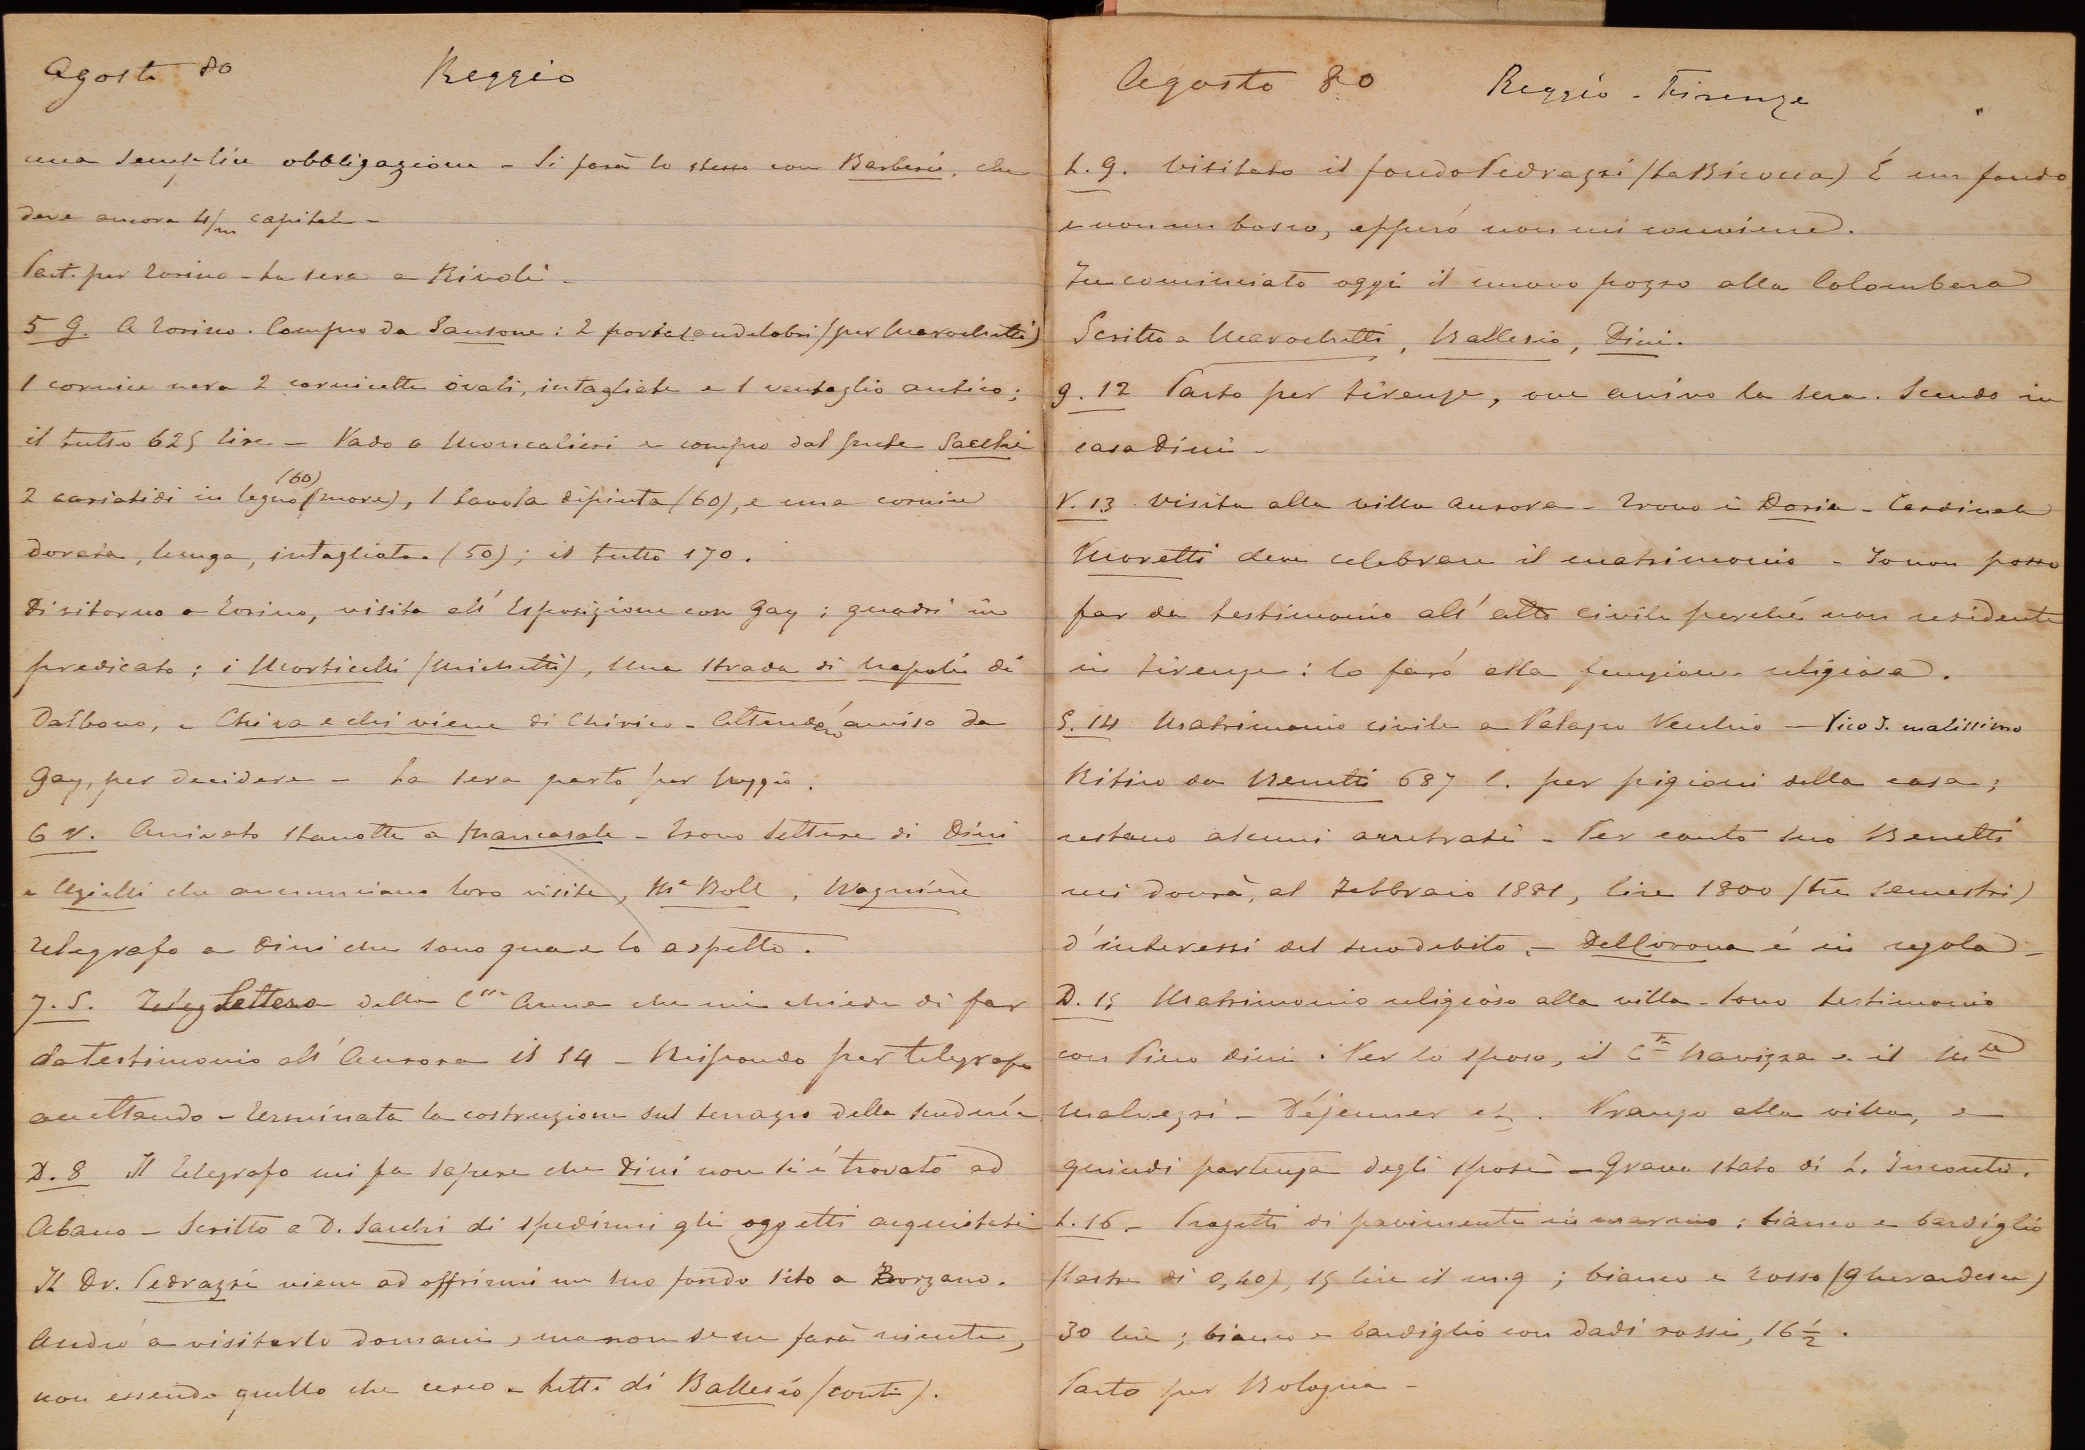 Agosto 80 Reggio
una semplice obbligazione - Si farà lo stesso con Barbieri, che
deve ancora 4/m capitale -
Part. per Torino - La sera a Rivoli -
5 G. A Torino. Compro da Sansone: 2 portacandelabri (per Marochetti)
1 cornice nera 2 cornicette ovali, intagliate e 1 ventaglio antico;
il tutto 625 lire - Vado a Moncalieri e compro dal prete Sacchi
(60)
2 cariatidi in legno (more), 1 tavola dipinta (60), e una cornice
dorata, lunga, intagliata (50); il tutto 170.
Di ritorno a Torino, visita all'Esposizione con Gay; quadri in
predicato: i Morticelli (Michetti), Una strada di Napoli di
Dalbono, e Chi va e chi viene di Chirico - Attenderò avviso da
Gay, per decidere - La sera parto per Reggio.
6 V. Arrivato stanotte a Mancasale - Trovo lettere di Dini
e Uzielli che annunciano loro visite, Me Boll, Wagnière
Telegrafo a Dini che sono qua e lo aspetto.
7. S. Teleg Lettera della Cssa Anna che mi chiede di far
da testimonio all'Aurora il 14 - Rispondo per telegrafo
accettando - Terminata la costruzione sul terrazzo della scuderia
D. 8 Il telegrafo mi fa sapere che Dini non si é trovato ad
Abano - Scritto a D. Sacchi di spedirmi gli oggetti acquistati
Il Dr. Pedrazzi viene ad offrirmi un suo fondo sito a Borzano.
Andrò a visitarlo domani, ma non se ne farà niente,
non essendo quello che cerco - Lett. di Ballesio (conti).
Agosto 80 Reggio - Firenze
L. 9. Visitato il fondo Pedrazzi (La Bicocca) É un fondo
e non un bosco, epperó non mi conviene.
Incominciato oggi il nuovo pozzo alla Colombara
Scritto a Marochetti, Ballesio, Dini.
G. 12 Parto per Firenze, ove arrivo la sera. Scendo in
casa Dini -
V. 13 Visita alla villa Aurora - Trovo i Doria - Cardinale
Moretti deve celebrare il matrimonio - Io non posso
far da testimonio all'atto civile perché non residente
in Firenze: lo faró alla funzione religiosa.
S. 14 Matrimonio civile a Palazzo Vecchio - Vico I. malissimo
Ritiro da Benetti 687 l. per pigioni della casa;
restano alcuni arretrati - Per conto suo Benetti
mi dovrà, al Febbraio 1881, lire 1800 (tre semestri)
d'interessi del suo debito. - Dellorona é in regola -
D. 15 Matrimonio religioso alla villa - Sono testimonio
con Pino Dini. Per lo sposo, il Cte Ravizza e il Mse
Malvezzi - Déjeuner etc. Pranzo alla villa, e
quindi partenza degli sposi - Grave stato di L. Incontri.
L. 16 - Progetti di pavimenti in marmo: bianco e bardiglio
(lastre di 0,40), 15 lire il m.q; bianco e rosso (Gherardesca)
30 lire; bianco e bardiglio con dadi rossi, 16 1/2.
Parto per Bologna -